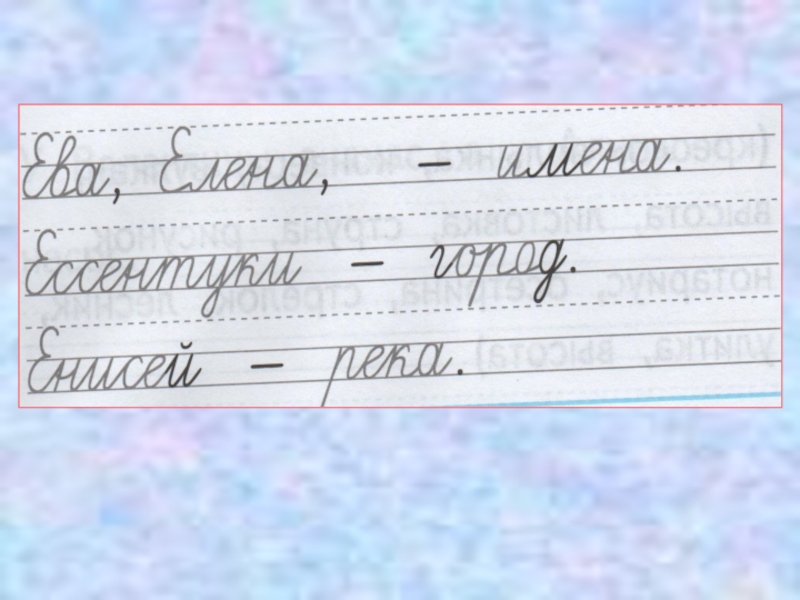 Ева, Елена, – имена.
Ессентуки – город.
Енисей – река.